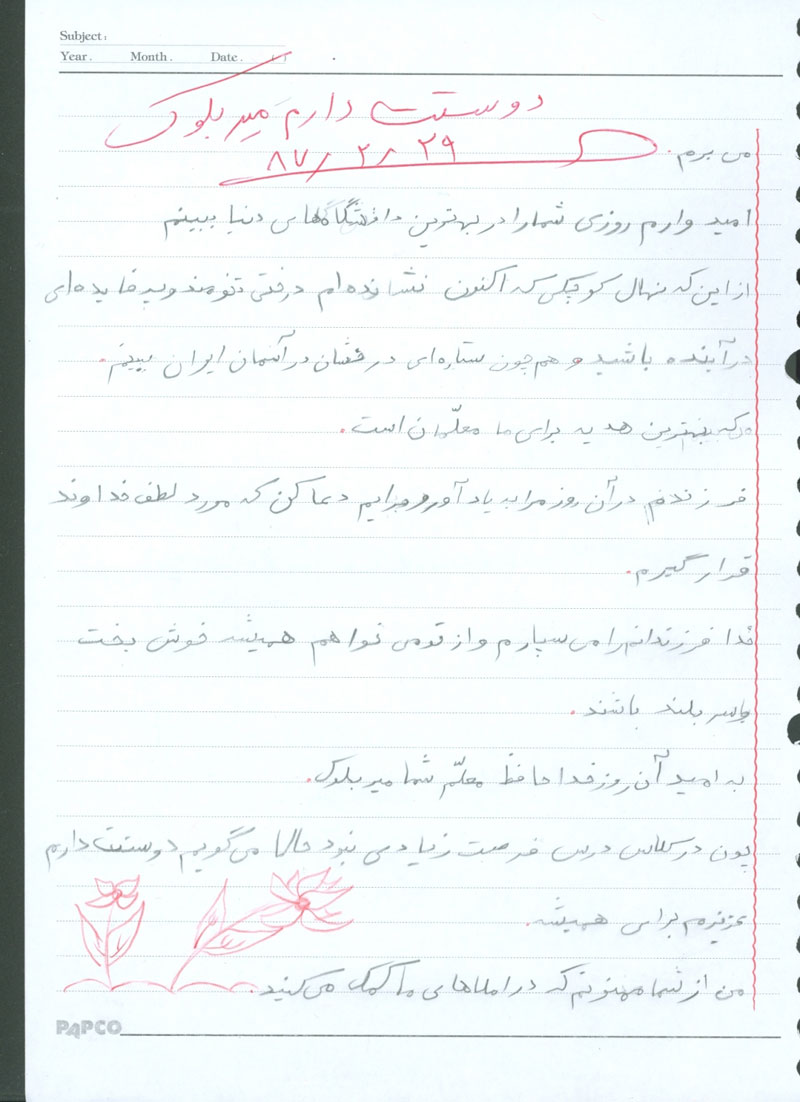 Subject:
Year. Month. Date.
دوستت دارم میر بلوک
۸۷/۲/۲۹
می برم.
امید وارم روزی شما را در بهترین دانشگاههای دنیا ببینم
از این که نهال کوچکی که اکنون نشانده ام درختی تنومند و پر فایده ای
در آینده باشید و هم چون ستاره ای درخشان در آسمان ایران ببینم.
که بهترین هدیه برای ما معلّمان است.
فرزندم در آن روز مرا به یاد آور و برایم دعا کن که مورد لطف خداوند
قرار گیرم.
خدا فرزندانم را می سپارم و از تو می خواهم همیشه خوش بخت
و سر بلند باشند.
به امید آن روز خدا حافظ معلّم شما میر بلوک.
چون در کلاس درس فرصت زیادی نبود حالا می گویم دوستت دارم
عزیزم برای همیشه.
من از شما ممنونم که در املاهای ما کمک می کنید.
PAPCO